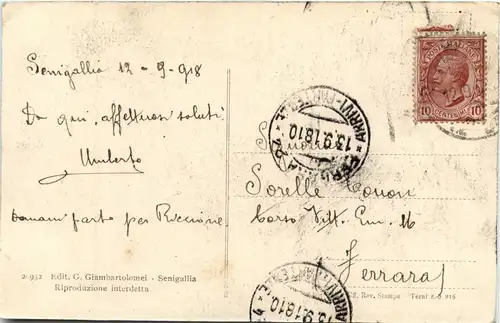 Senigallia 12-9-918
Da qui, affettuosi saluti
Umberto
Domani parto per Riccione.
2-932 Edit. G. Giambartolomei - Senigallia
Riproduzione interdetta
POSTE ITALIANE
10 CENTESIMI 10
ARRIVI-PARTENZE
13.9.18 10
Signorine
Sorelle
Corso Vitt. Em. 16
Ferrara
ARRIVI
13.9.18 10
Rev. Stampa Terni